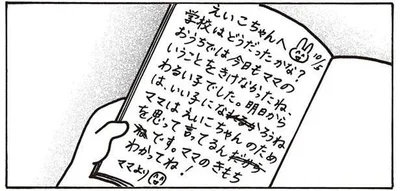 えいこちゃんへ
10/5
学校はどうだったかな?
おうちでは今日もママの
いうことをきけなかったね、
わるい子でした。明日から
は、いい子になろうね
ママはえいこちゃんのため
を思って言てるん
です。ママのきもち
わかってね!
ママより